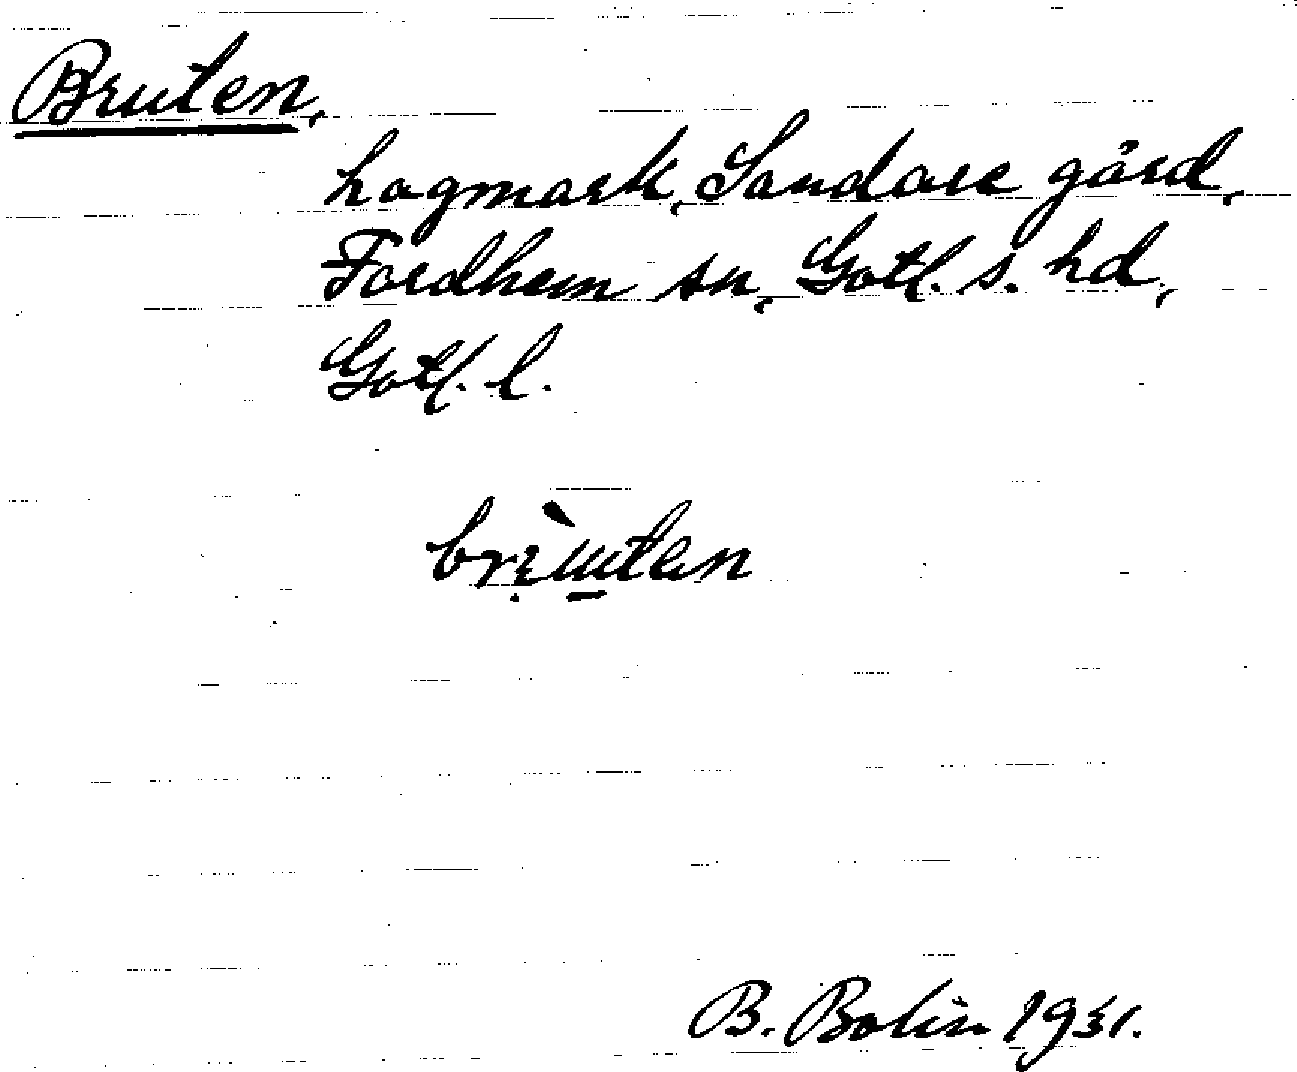 Bruten,
hagmark, Sandare gård,
Fardhem sn, Gotl. s. hd,
Gotl. l.
B. Bolin 1931.